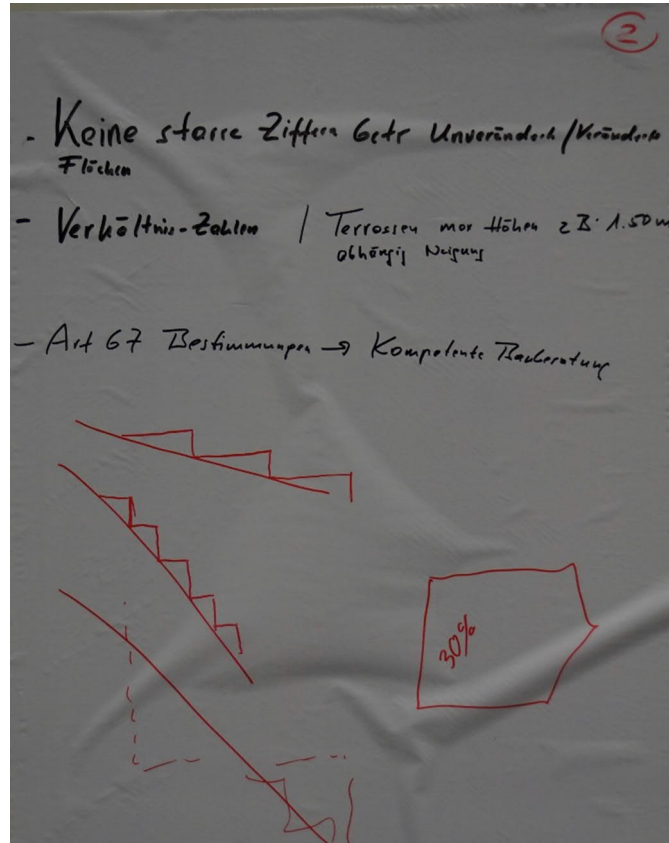 2
- Keine starre Ziffern betr Unverändert/Veränderte
Flächen
- Verhältnis-Zahlen / Terrassen max Höhen z B. 1.50 m
abhängig Neigung
- Art 67 Bestimmungen → Kompetente Bauberatung
30%